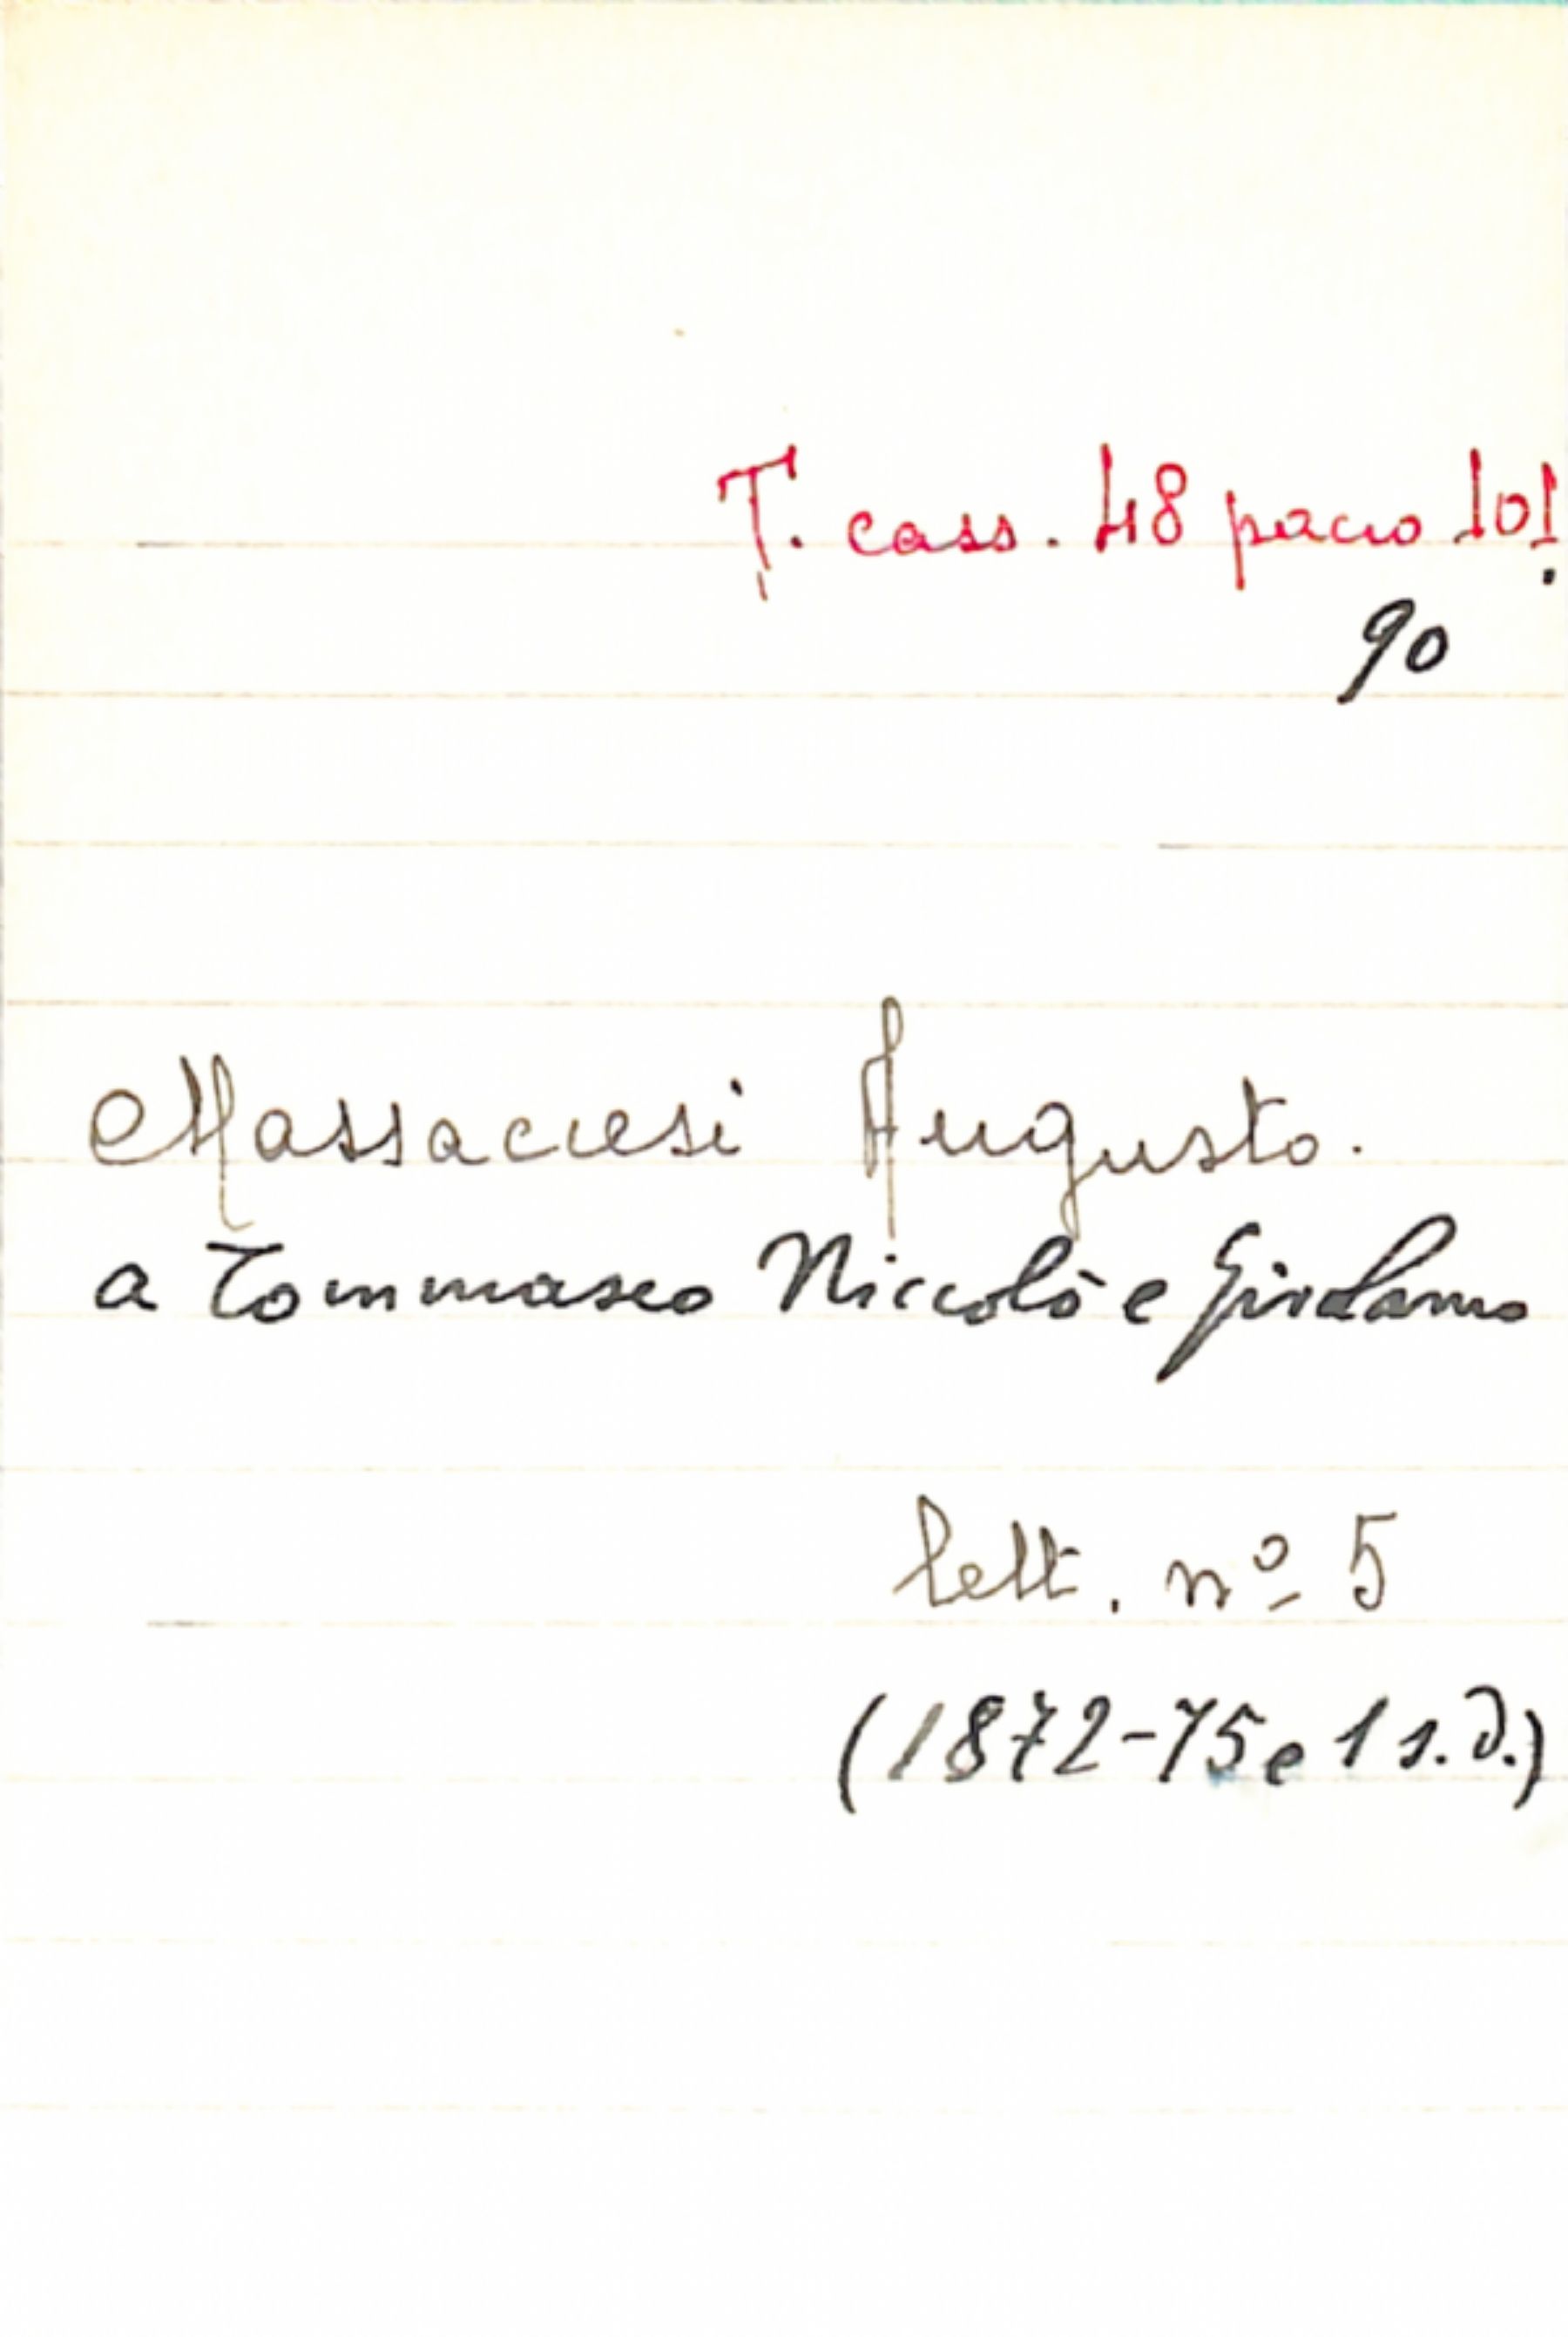 T. cass. 48 pacco 101.
90
Massaccesi Augusto.
a Tommaseo Niccolò e Girolamo
lett. nº 5
(1872-75 e 1 s.d.)